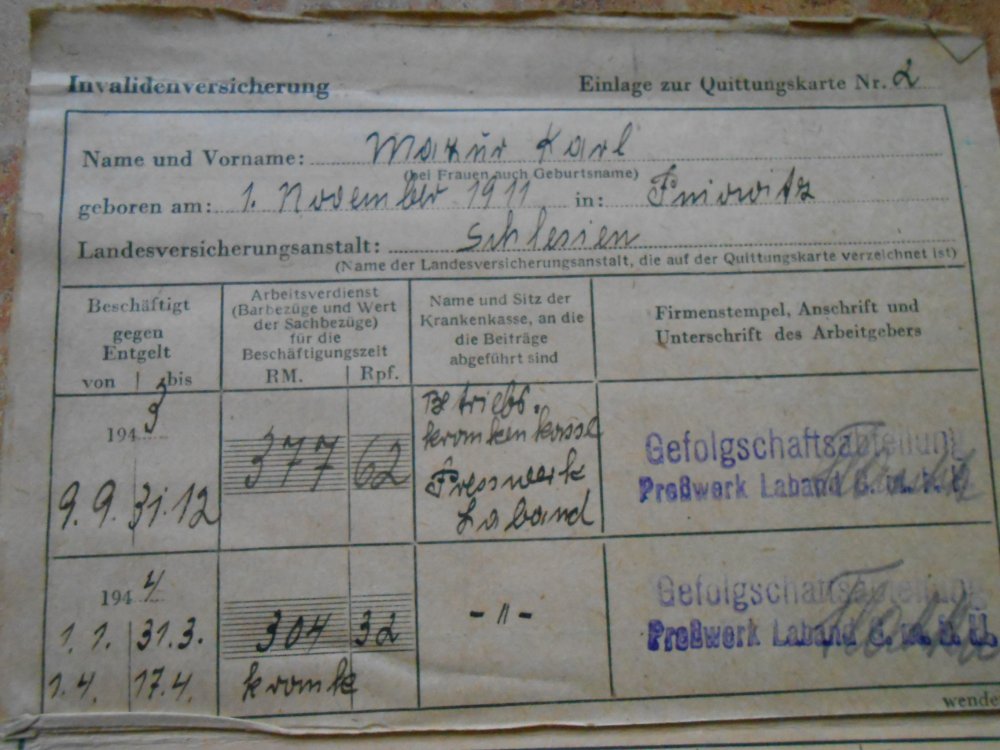 Invalidenversicherung Einlage zur Quittungskarte Nr. 2
Name und Vorname: Mazur Karl
(bei Frauen auch Geburtsname)
geboren am: 1. November 1911 in:
Landesversicherungsanstalt: Schlesien
(Name der Landesversicherungsanstalt, die auf der Quittungskarte verzeichnet ist)
Beschäftigt
gegen
Entgelt
von bis
Arbeitsverdienst
(Barbezüge und Wert
der Sachbezüge)
für die
Beschäftigungszeit
RM. Rpf.
Name und Sitz der
Krankenkasse, an die
die Beiträge
abgeführt sind
Firmenstempel, Anschrift und
Unterschrift des Arbeitgebers
1943
9.9. 31.12
377 62
Betriebs.
krankenkasse
Presswerk
Laband
Gefolgschaftsabteilung
Preßwerk Laband G.m.b.H.
1944
1.1. 31.3.
304 32
- 11 -
1.4. 17.4. krank
Gefolgschaftsabteilung
Preßwerk Laband G.m.b.H.
wende